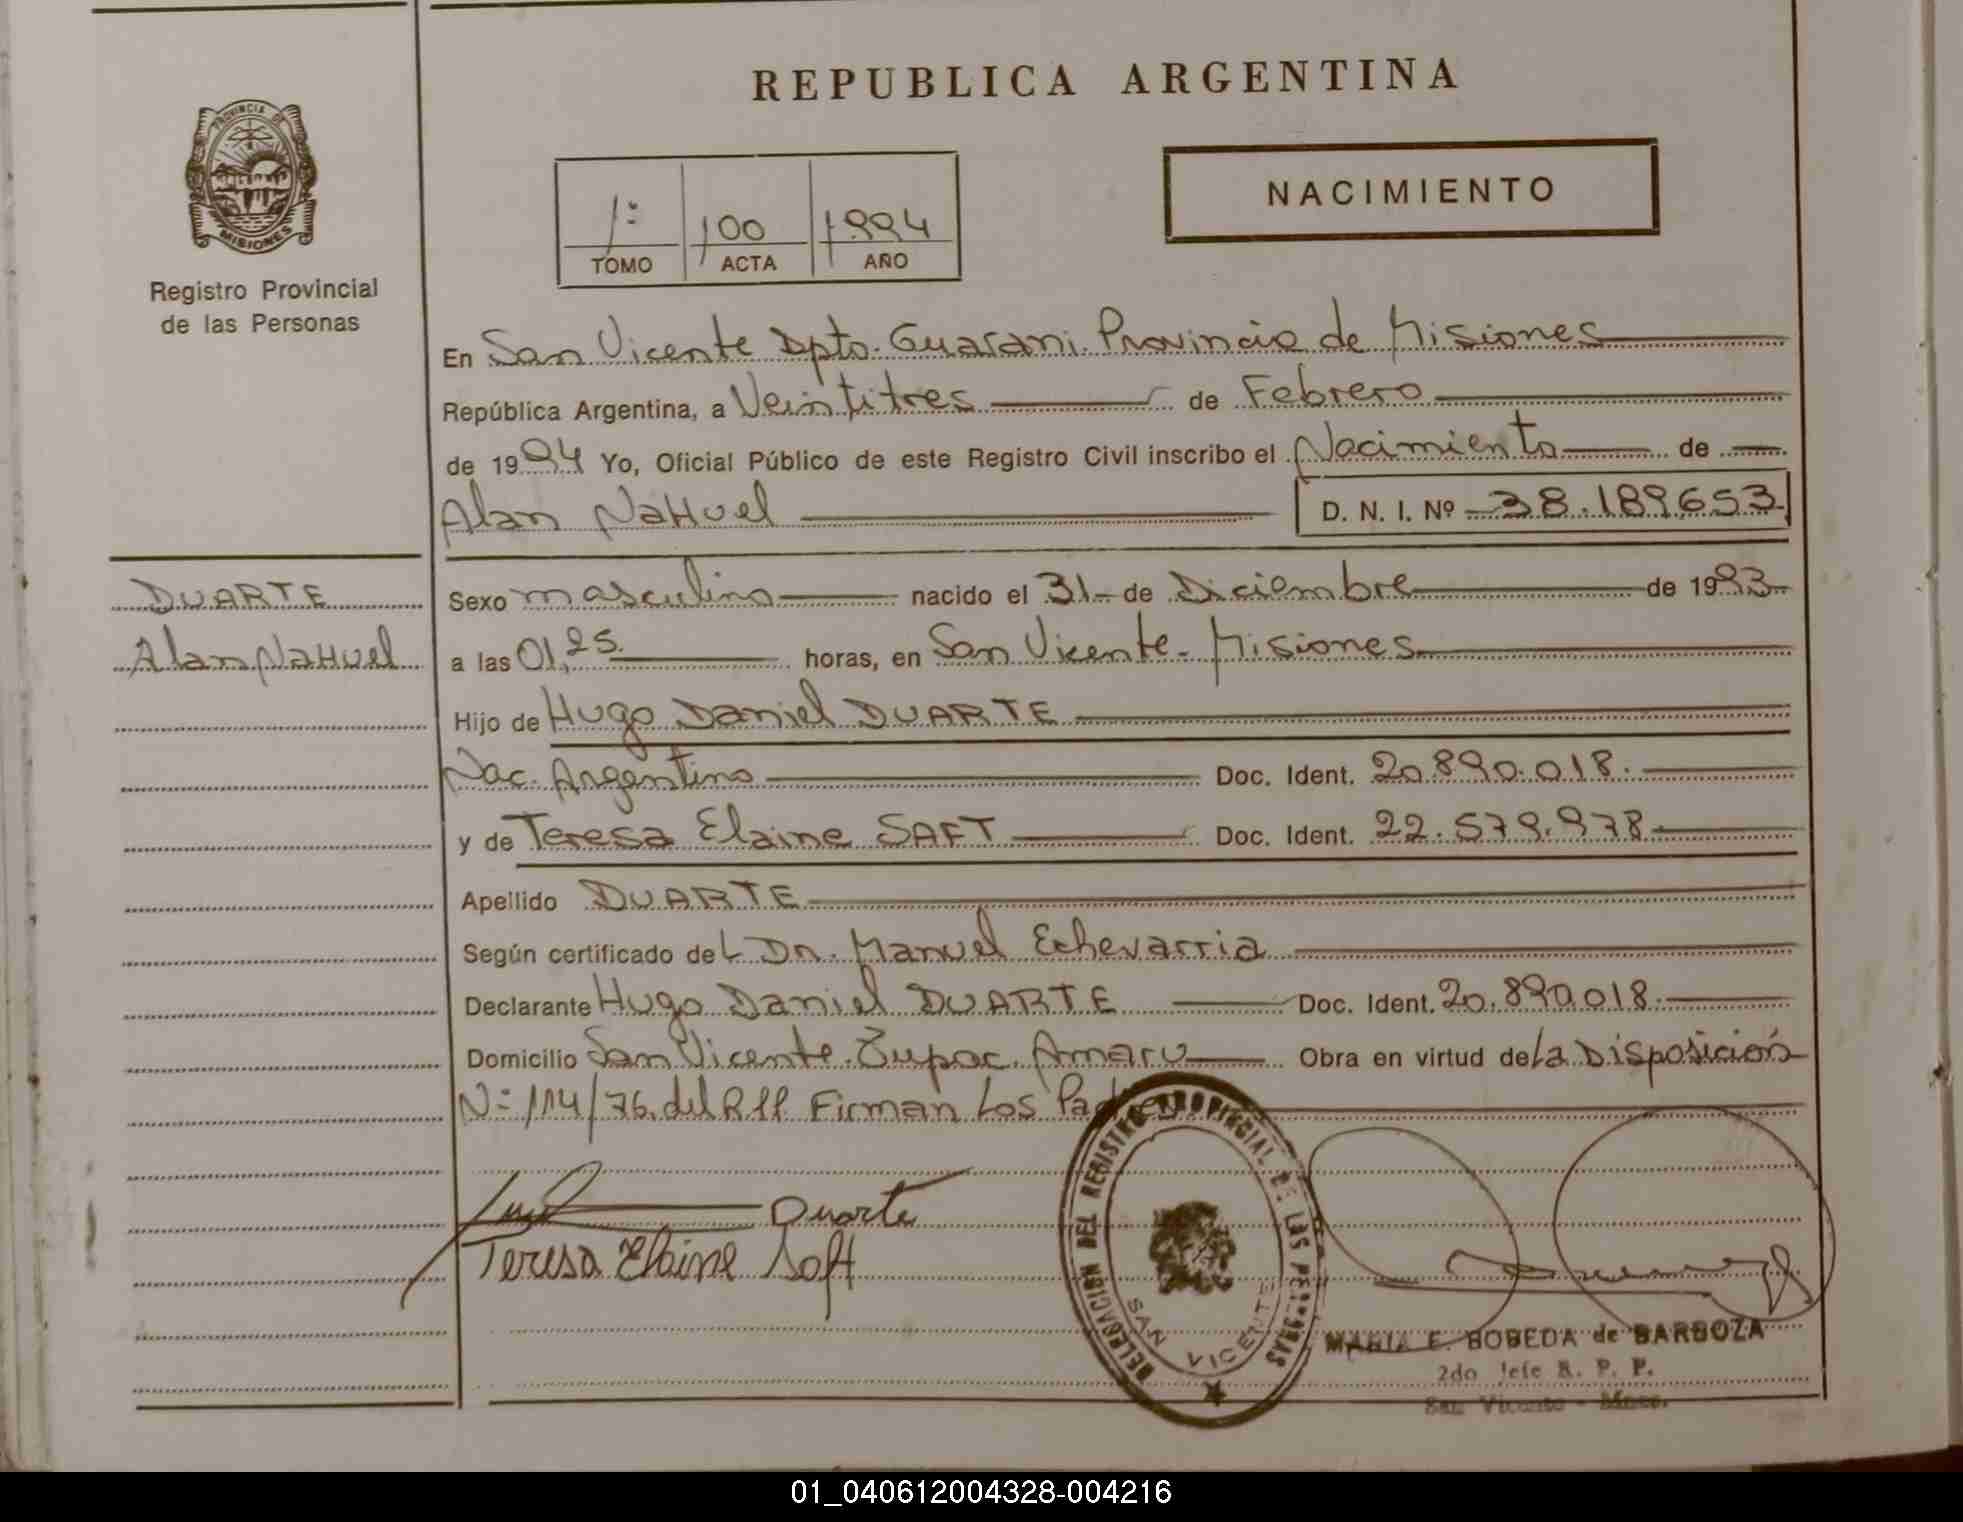 REPUBLICA ARGENTINA
PROVINCIA DE
MISIONES
Registro Provincial
de las Personas
NACIMIENTO
1º 100 1994
TOMO ACTA AÑO
En San Vicente Dpto. Guarani. Provincia de Misiones
República Argentina, a Veintitres de Febrero
de 1994 Yo, Oficial Público de este Registro Civil inscribo el Nacimiento de
Alan NaHuel D. N. I. Nº 38.189653
DUARTE
Alan NaHuel
Sexo masculino nacido el 31 de Diciembre de 1993
a las 01,25. horas, en San Vicente - Misiones
Hijo de Hugo Daniel DUARTE
Nac. Argentino Doc. Ident. 20.890.018.
y de Teresa Elaine SAFT Doc. Ident. 22.579.978
Apellido DUARTE
Según certificado del Dn. Manuel Echevarria
Declarante Hugo Daniel DUARTE Doc. Ident. 20.890.018.
Domicilio San Vicente. Tupac. Amaru Obra en virtud de La Disposición
Nº 114/76. del RPP. Firman Los Padres
Duarte
Teresa Elaine Saft
DELEGACION DEL REGISTRO PROVINCIAL DE LAS PERSONAS
SAN VICENTE
MARIA E. BOBEDA de BARBOZA
2do Jefe R. P. P.
San Vicente - Mnes.
01_040612004328-004216